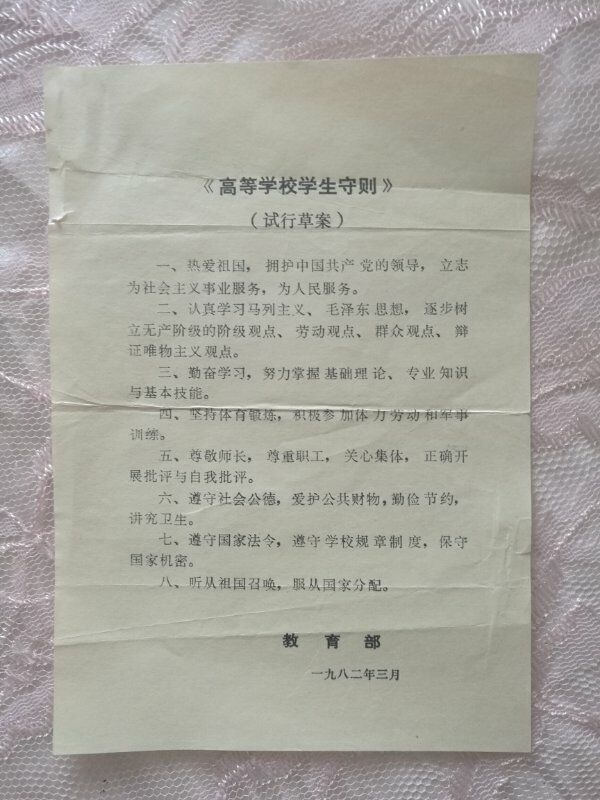 《高等学校学生守则》
（试行草案）
一、热爱祖国，拥护中国共产党的领导，立志
为社会主义事业服务，为人民服务。
二、认真学习马列主义、毛泽东思想，逐步树
立无产阶级的阶级观点、劳动观点、群众观点、辩
证唯物主义观点。
三、勤奋学习，努力掌握基础理论、专业知识
与基本技能。
四、坚持体育锻炼，积极参加体力劳动和军事
训练。
五、尊敬师长，尊重职工，关心集体，正确开
展批评与自我批评。
六、遵守社会公德，爱护公共财物，勤俭节约，
讲究卫生。
七、遵守国家法令，遵守学校规章制度，保守
国家机密。
八、听从祖国召唤，服从国家分配。
教育部
一九八二年三月